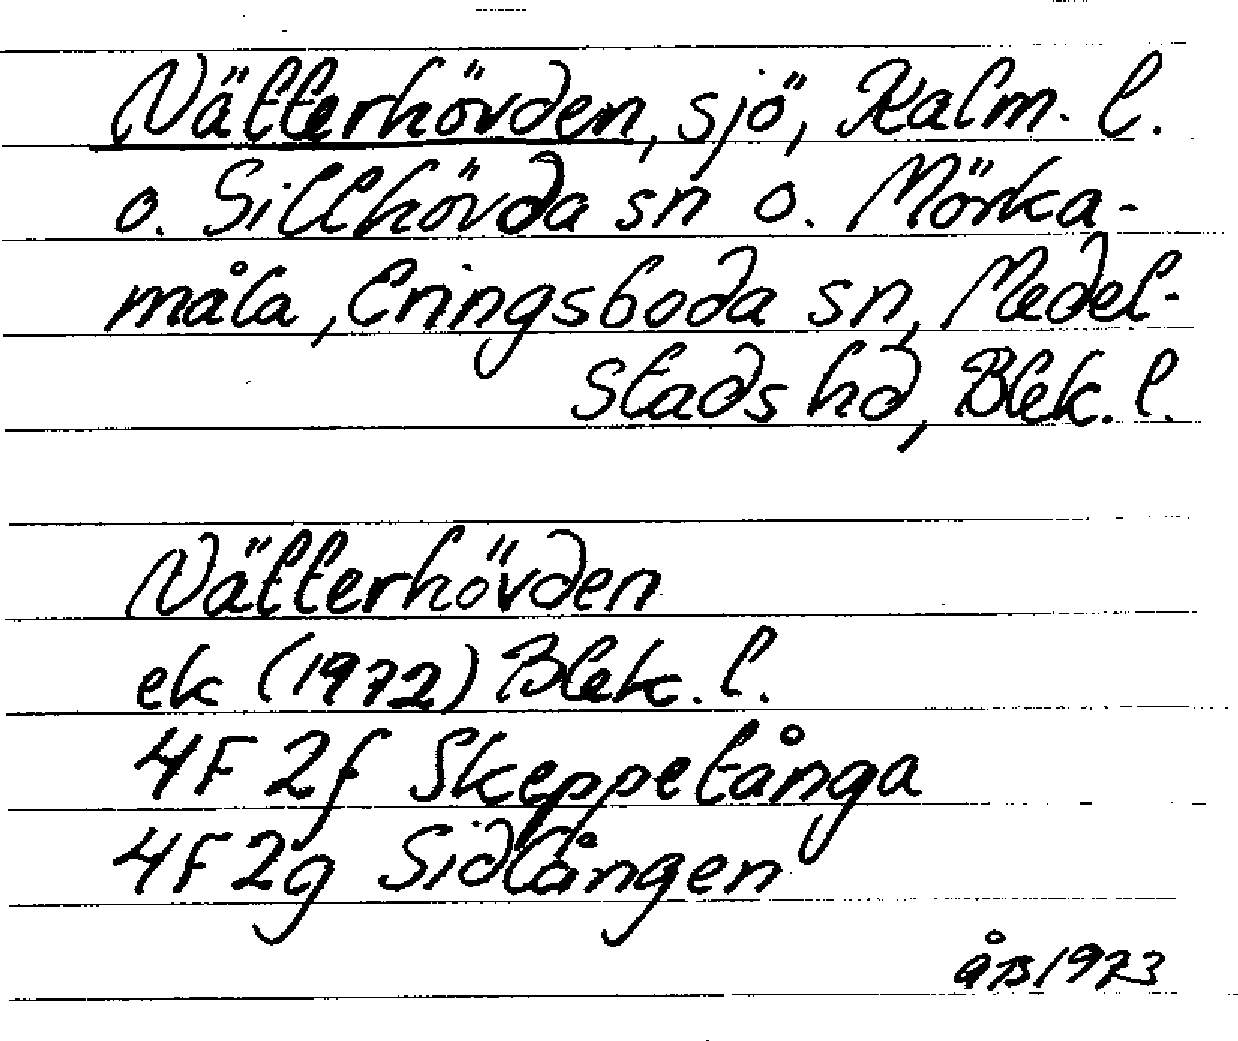 Nätterhövden, sjö, Kalm. l.
o. Sillhövda sn o. Mörka-
måla, Eringsboda sn, Medel-
stads hd, Blek. l.
Nätterhövden
ek (1972) Blek. l.
4F 2f Skeppetånga
4F 2g Sidlången
åB 1973